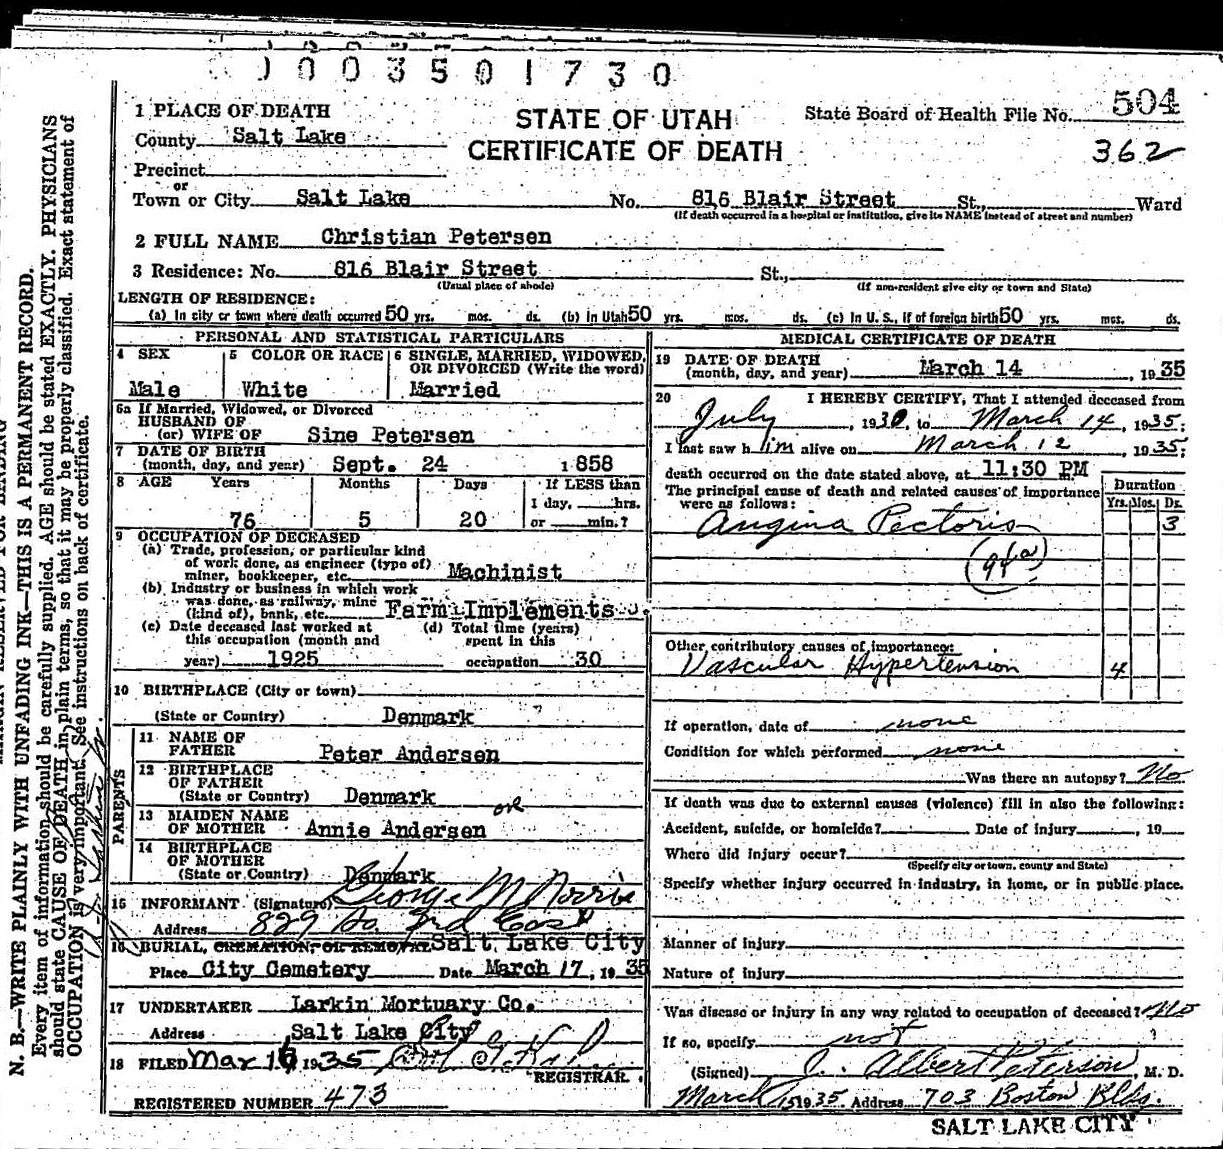 0003501730
1 PLACE OF DEATH
STATE OF UTAH
CERTIFICATE OF DEATH
State Board of Health File No. 504
362
County Salt Lake
Precinct
or
Town or City Salt Lake No. 816 Blair Street St., Ward
(If death occurred in a hospital or institution, give its NAME instead of street and number)
2 FULL NAME Christian Petersen
3 Residence: No. 816 Blair Street St.,
(Usual place of abode) (If non-resident give city or town and State)
LENGTH OF RESIDENCE:
(a) In city or town where death occurred 50 yrs. mos. ds. (b) in Utah 50 yrs. mos. ds. (c) In U. S., if of foreign birth 50 yrs. mos. ds.
PERSONAL AND STATISTICAL PARTICULARS
4 SEX Male
5 COLOR OR RACE White
6 SINGLE, MARRIED, WIDOWED, OR DIVORCED (Write the word)
Married
6a If Married, Widowed, or Divorced
HUSBAND OF
(or) WIFE OF Sine Petersen
7 DATE OF BIRTH
(month, day, and year) Sept. 24 1858
8 AGE Years Months Days If LESS than
1 day, hrs.
76 5 20 or min.?
9 OCCUPATION OF DECEASED
(a) Trade, profession, or particular kind
of work done, as engineer (type of)
miner, bookkeeper, etc. Machinist
(b) Industry or business in which work
was done, as railway, mine
(kind of), bank, etc. Farm Implements
(c) Date deceased last worked at
this occupation (month and
year) 1925
(d) Total time (years)
spent in this
occupation 30
10 BIRTHPLACE (City or town)
(State or Country) Denmark
PARENTS
11 NAME OF
FATHER Peter Andersen
12 BIRTHPLACE
OF FATHER
(State or Country) Denmark
13 MAIDEN NAME
OF MOTHER Annie Andersen
14 BIRTHPLACE
OF MOTHER
(State or Country) Denmark
15 INFORMANT (Signature) George M Norris
Address 829 So. 3rd East
16 BURIAL, CREMATION, OR REMOVAL Salt Lake City
Place City Cemetery Date March 17, 1935
17 UNDERTAKER Larkin Mortuary Co.
Address Salt Lake City
18 FILED Mar 16 1935
REGISTRAR.
REGISTERED NUMBER 473
MEDICAL CERTIFICATE OF DEATH
19 DATE OF DEATH
(month, day, and year) March 14, 1935
20 I HEREBY CERTIFY, That I attended deceased from
July, 1930, to March 14, 1935;
I last saw him alive on March 12 1935;
death occurred on the date stated above, at 11:30 PM
The principal cause of death and related causes of importance
were as follows:
Duration
Yrs. Mos. Ds.
Angina Pectoris 3
(94a)
Other contributory causes of importance:
Vascular Hypertension 4
If operation, date of none
Condition for which performed none
Was there an autopsy? No
If death was due to external causes (violence) fill in also the following:
Accident, suicide, or homicide? Date of injury, 19
Where did injury occur?
(Specify city or town, county and State)
Specify whether injury occurred in industry, in home, or in public place.
Manner of injury
Nature of injury
Was disease or injury in any way related to occupation of deceased? No
If so, specify not
(Signed) J. Albert Peterson, M. D.
March 15 1935 Address 703 Boston Bldg.
SALT LAKE CITY
N. B.—WRITE PLAINLY WITH UNFADING INK—THIS IS A PERMANENT RECORD.
Every item of information should be carefully supplied. AGE should be stated EXACTLY. PHYSICIANS
should state CAUSE OF DEATH in plain terms, so that it may be properly classified. Exact statement of
OCCUPATION is very important. See instructions on back of certificate.